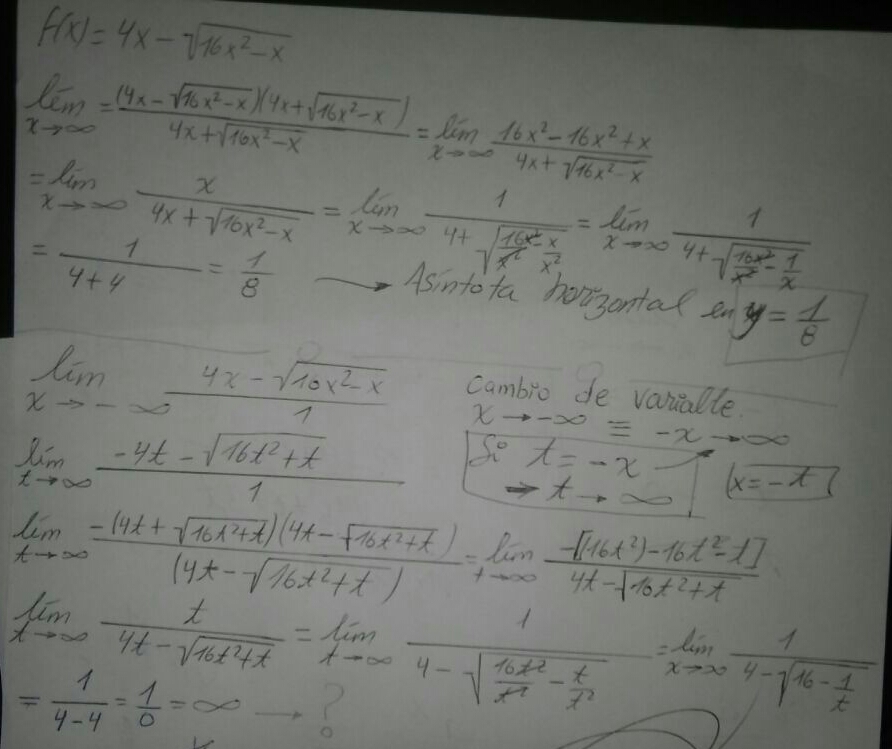 f(x) = 4x - √(16x² - x)
lím x→∞ = (4x - √(16x² - x))(4x + √(16x² - x)) / (4x + √(16x² - x)) = lím x→∞ (16x² - 16x² + x) / (4x + √(16x² - x))
= lím x→∞ x / (4x + √(16x² - x)) = lím x→∞ 1 / (4 + √(16x²/x² - x/x²)) = lím x→∞ 1 / (4 + √(16x²/x² - 1/x))
= 1 / (4 + 4) = 1/8 → Asíntota horizontal en y = 1/8
lím x→-∞ (4x - √(16x² - x)) / 1
Cambio de variable.
x→-∞ ≡ -x→∞
Si t = -x
⇒ t→∞
x = -t
lím t→∞ (-4t - √(16t² + t)) / 1
lím t→∞ -(4t + √(16t² + t))(4t - √(16t² + t)) / (4t - √(16t² + t)) = lím t→∞ -[(16t²) - 16t² - t] / (4t - √(16t² + t))
lím t→∞ t / (4t - √(16t² + t)) = lím t→∞ 1 / (4 - √(16t²/t² - t/t²)) = lím x→∞ 1 / (4 - √(16 - 1/t))
= 1 / (4 - 4) = 1/0 = ∞ → ?